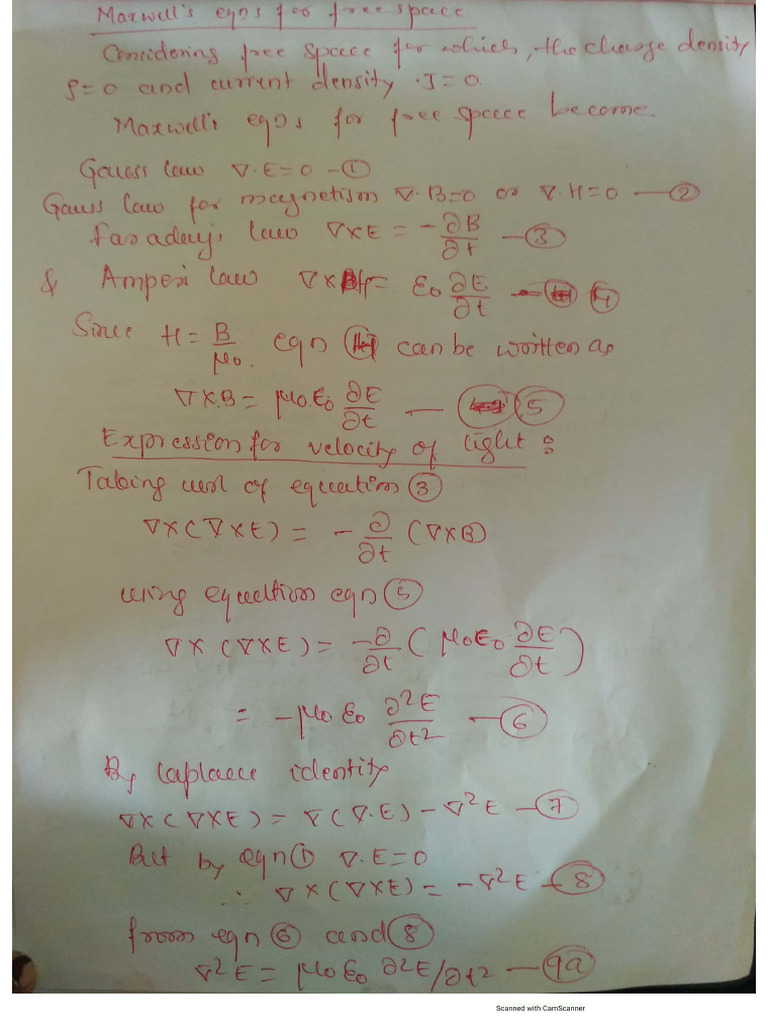 Maxwell's eqns for free space
Considering free space for which, the charge density
ρ=0 and current density .J=0.
Maxwell's eqns for free space become
Gauss law ∇·E=0 —①
Gauss law for magnetism ∇·B=0 or ∇·H=0 —②
faraday's law ∇×E = -∂B/∂t —③
& Amperi law ∇×H= ε₀ ∂E/∂t — ④
Since H = B/μ₀. eqn can be written as
∇×B = μ₀.ε₀ ∂E/∂t — ⑤
Expression for velocity of light:
Taking curl of equation ③
∇×(∇×E) = -∂/∂t (∇×B)
using equation eqn ⑤
∇×(∇×E) = -∂/∂t (μ₀ε₀ ∂E/∂t)
= -μ₀ε₀ ∂²E/∂t² —⑥
By laplace identity
∇×(∇×E) = ∇(∇·E) - ∇²E —⑦
But by eqn ① ∇·E=0
∴ ∇×(∇×E) = -∇²E —⑧
from eqn ⑥ and ⑧
∇²E = μ₀ε₀ ∂²E/∂t² —(9a)
Scanned with CamScanner